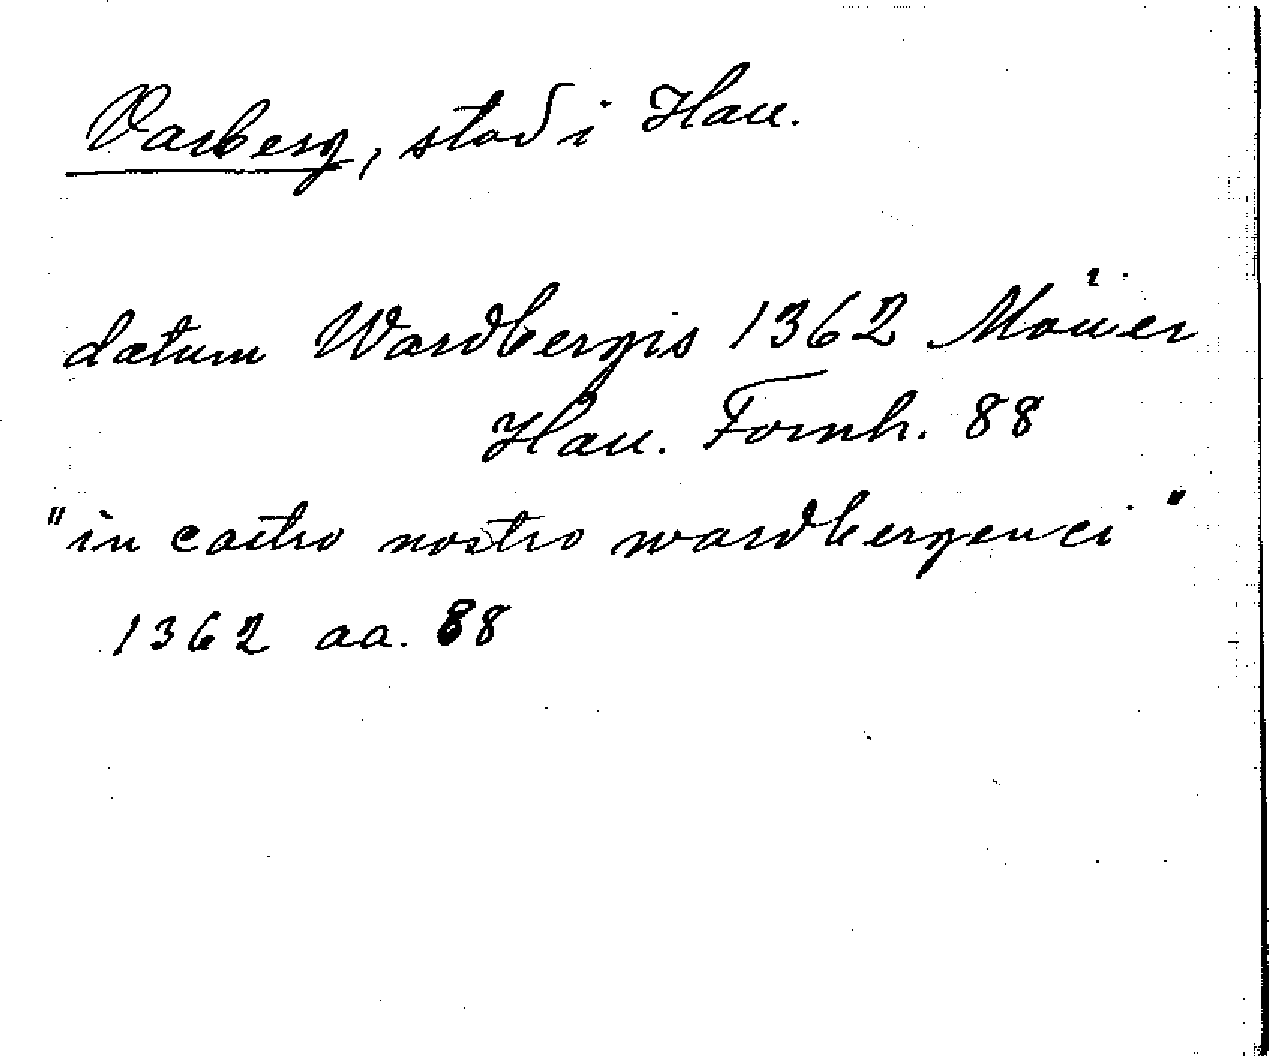 Varberg, stad i Hall.
datum Wardbergis 1362 Möller
Hall. Fornh. 88
"in castro nostro wardbergenci"
1362 aa. 88